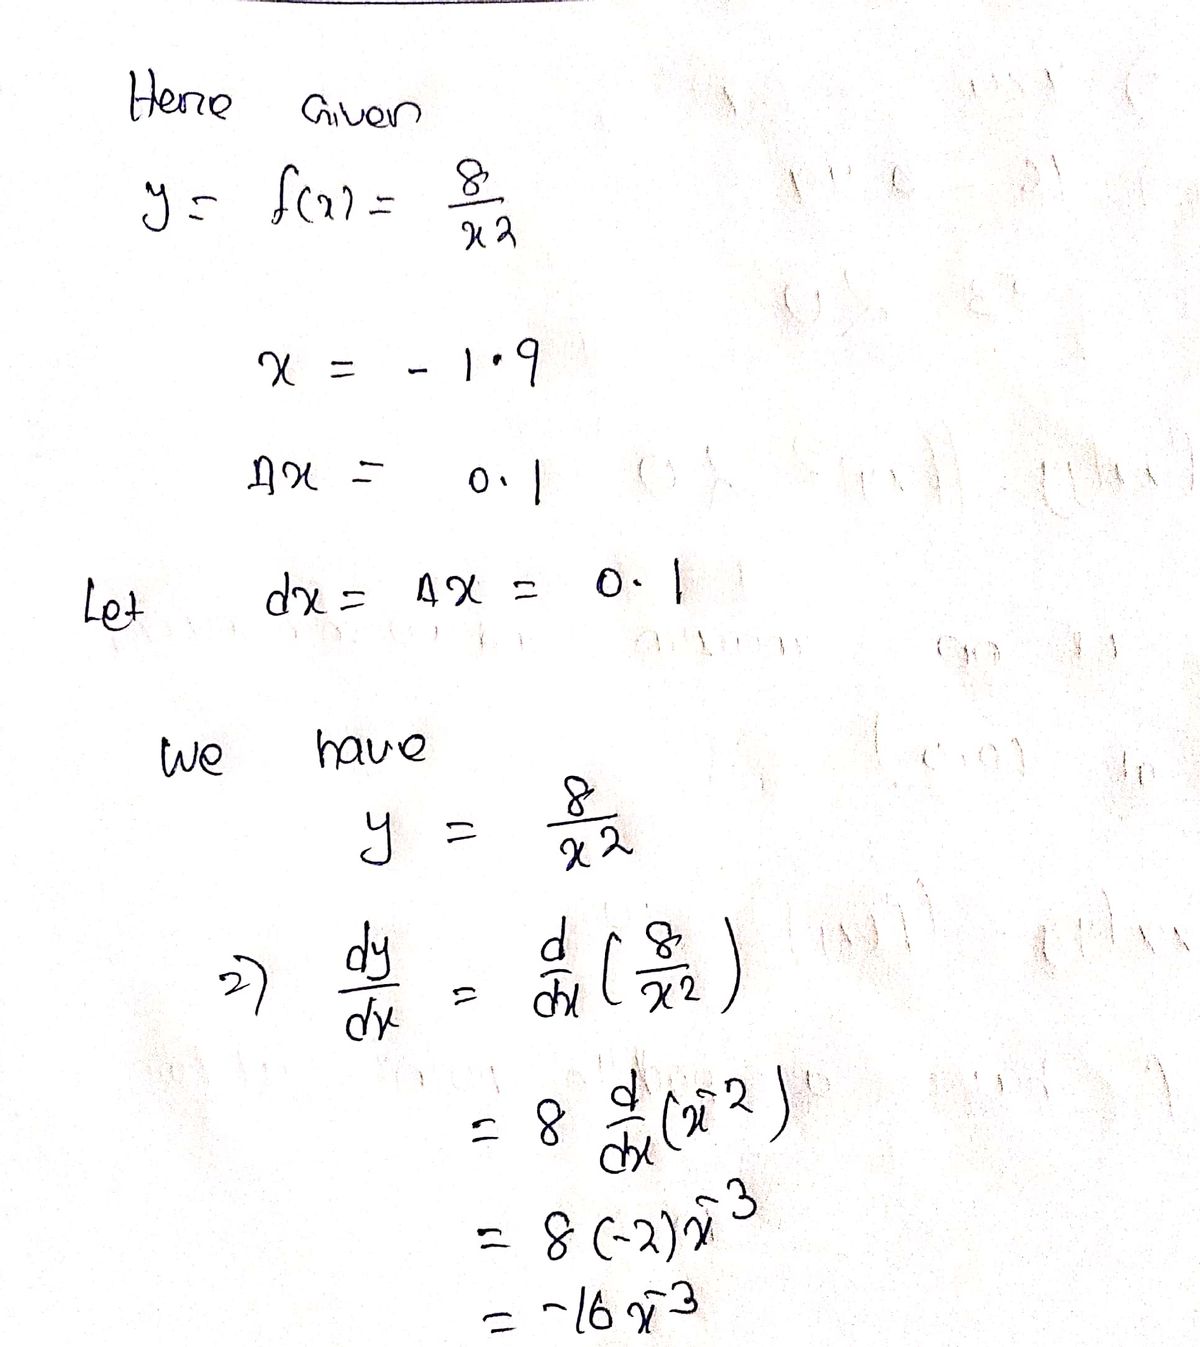 Here Given
y = f(x) = 8/x2
x = - 1.9
Δx = 0.1
Let dx = Δx = 0.1
We have
y = 8/x2
=) dy/dx = d/dx (8/x2)
= 8 d/dx (x^-2)
= 8 (-2) x^-3
= -16 x^-3